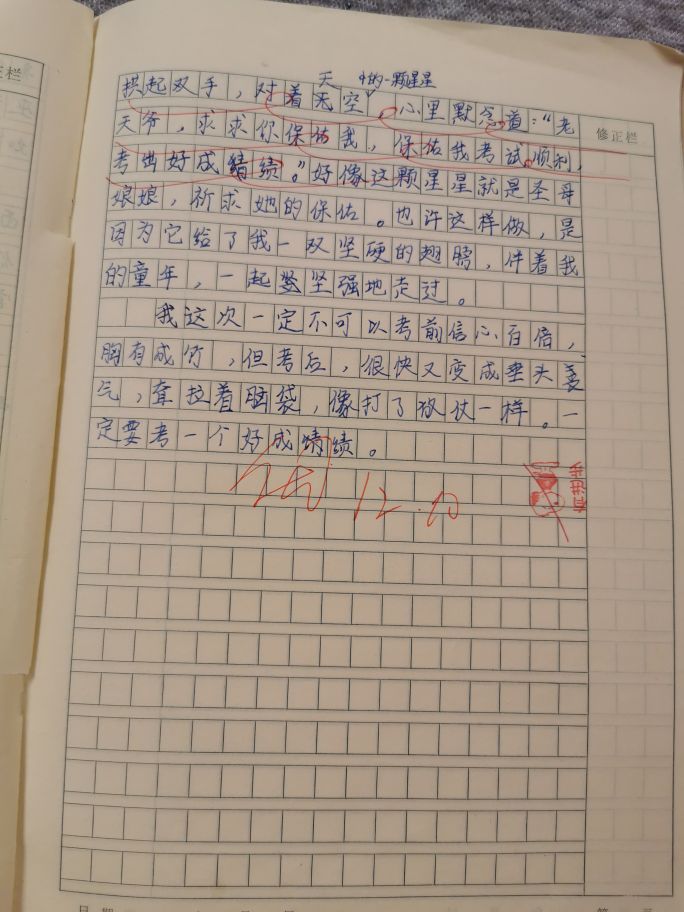 正栏
天 中的一颗星星
拱起双手，对着无空，心里默念道：“老
天爷，求求你保佑我，保佑我考试顺利，
考出好成绩绩。”好像这颗星星就是圣哥
娘娘，祈求她的保佑。也许这样做，是
因为它给了我一双坚硬的翅膀，伴着我
的童年，一起坚强地走过。
我这次一定不可以考前信心百倍，
胸有成竹，但考后，很快又变成垂头丧
气，耷拉着脑袋，像打了败仗一样。一
定要考一个好成绩绩。
修正栏
优 12.
有进步
日期
第 页